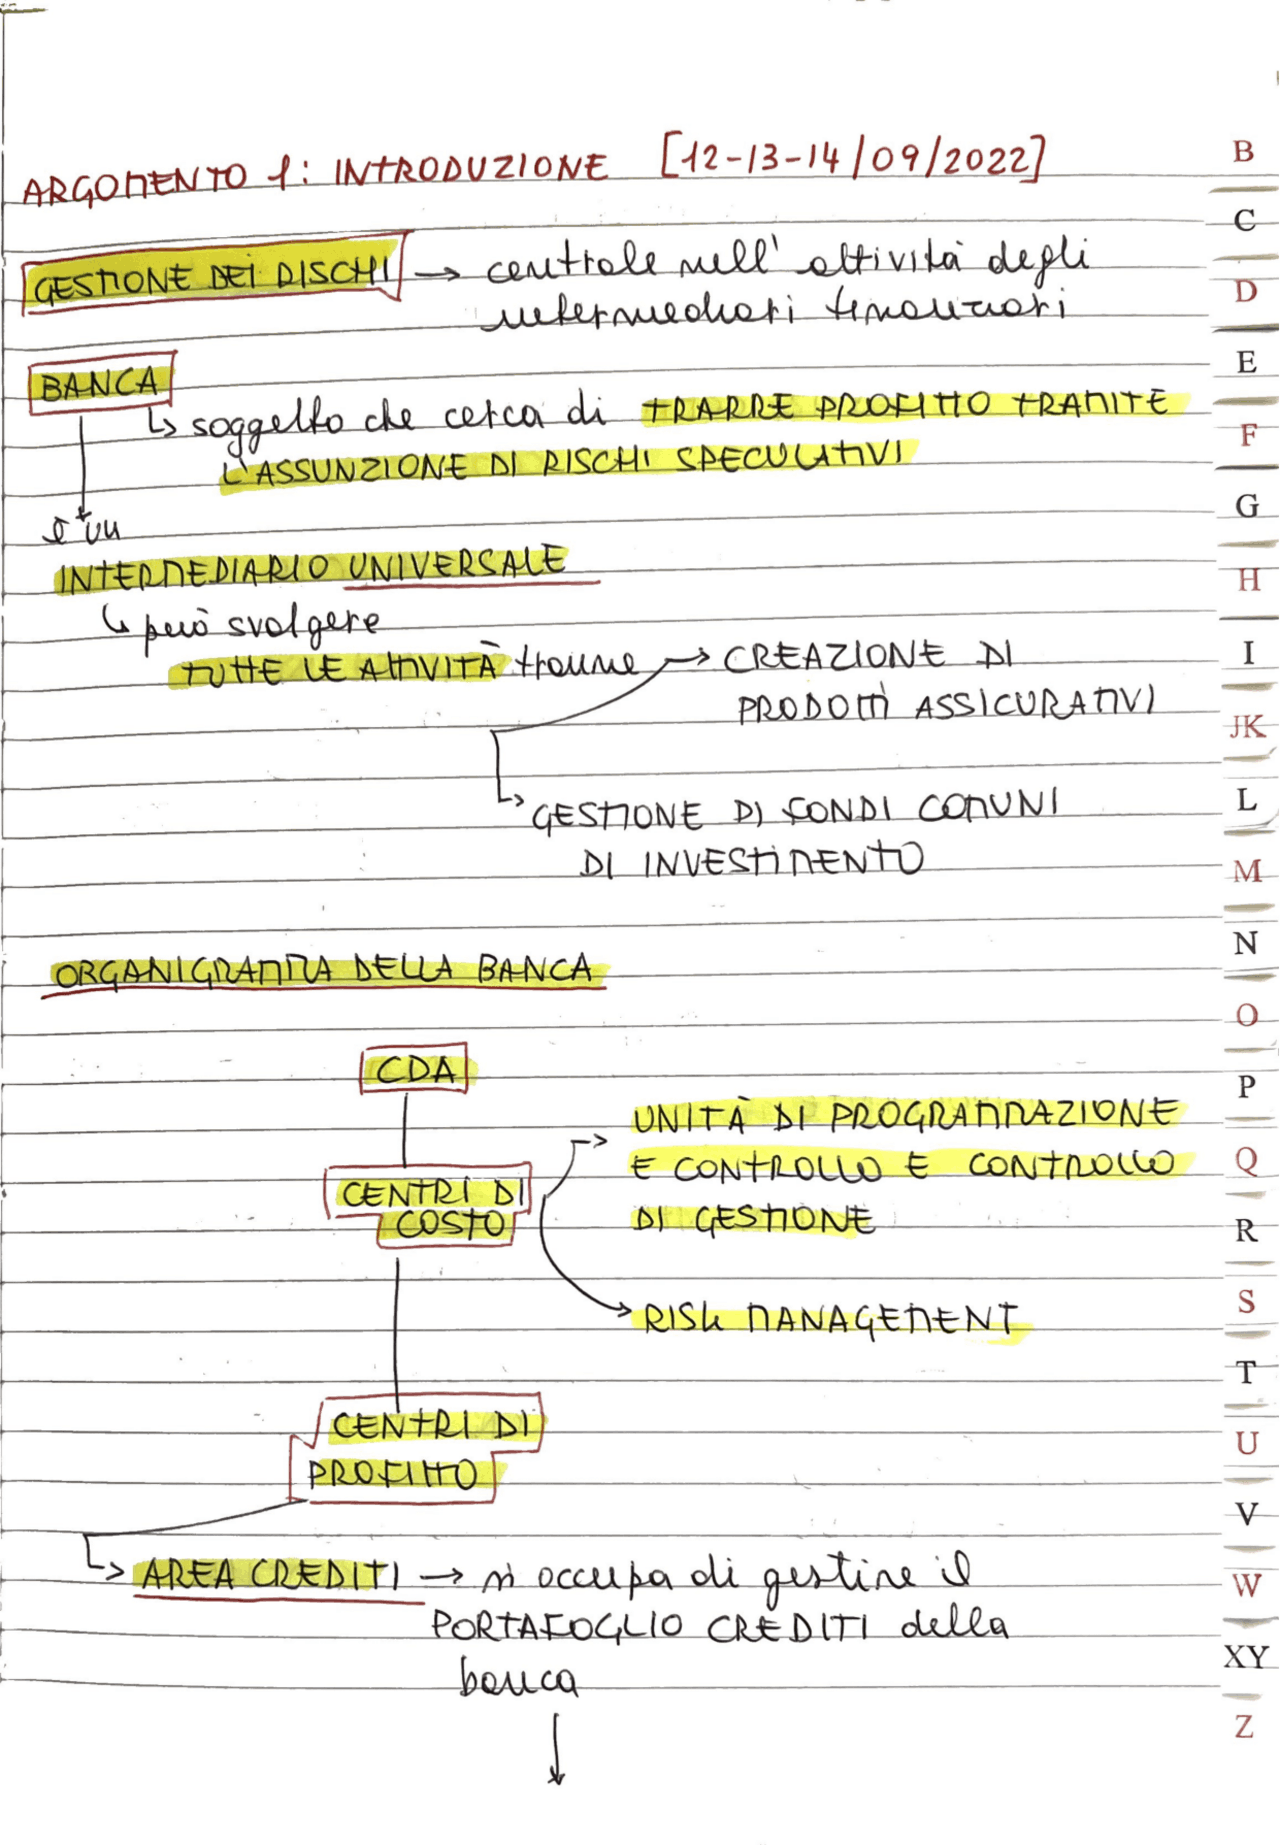 ARGOMENTO 1: INTRODUZIONE [12-13-14/09/2022]
GESTIONE DEI RISCHI → centrale nell'attività degli
intermediari finanziari
BANCA
↳ soggetto che cerca di TRARRE PROFITTO TRAMITE
L'ASSUNZIONE DI RISCHI SPECULATIVI
è un
INTERMEDIARIO UNIVERSALE
↳ può svolgere
TUTTE LE ATTIVITÀ tranne → CREAZIONE DI
PRODOTTI ASSICURATIVI
↳ GESTIONE DI FONDI COMUNI
DI INVESTIMENTO
ORGANIGRAMMA DELLA BANCA
CDA
CENTRI DI
COSTO
→ UNITÀ DI PROGRAMMAZIONE
E CONTROLLO E CONTROLLO
DI GESTIONE
→ RISK MANAGEMENT
CENTRI DI
PROFITTO
↳ AREA CREDITI → si occupa di gestire il
PORTAFOGLIO CREDITI della
banca
↓
B
C
D
E
F
G
H
I
JK
L
M
N
O
P
Q
R
S
T
U
V
W
XY
Z